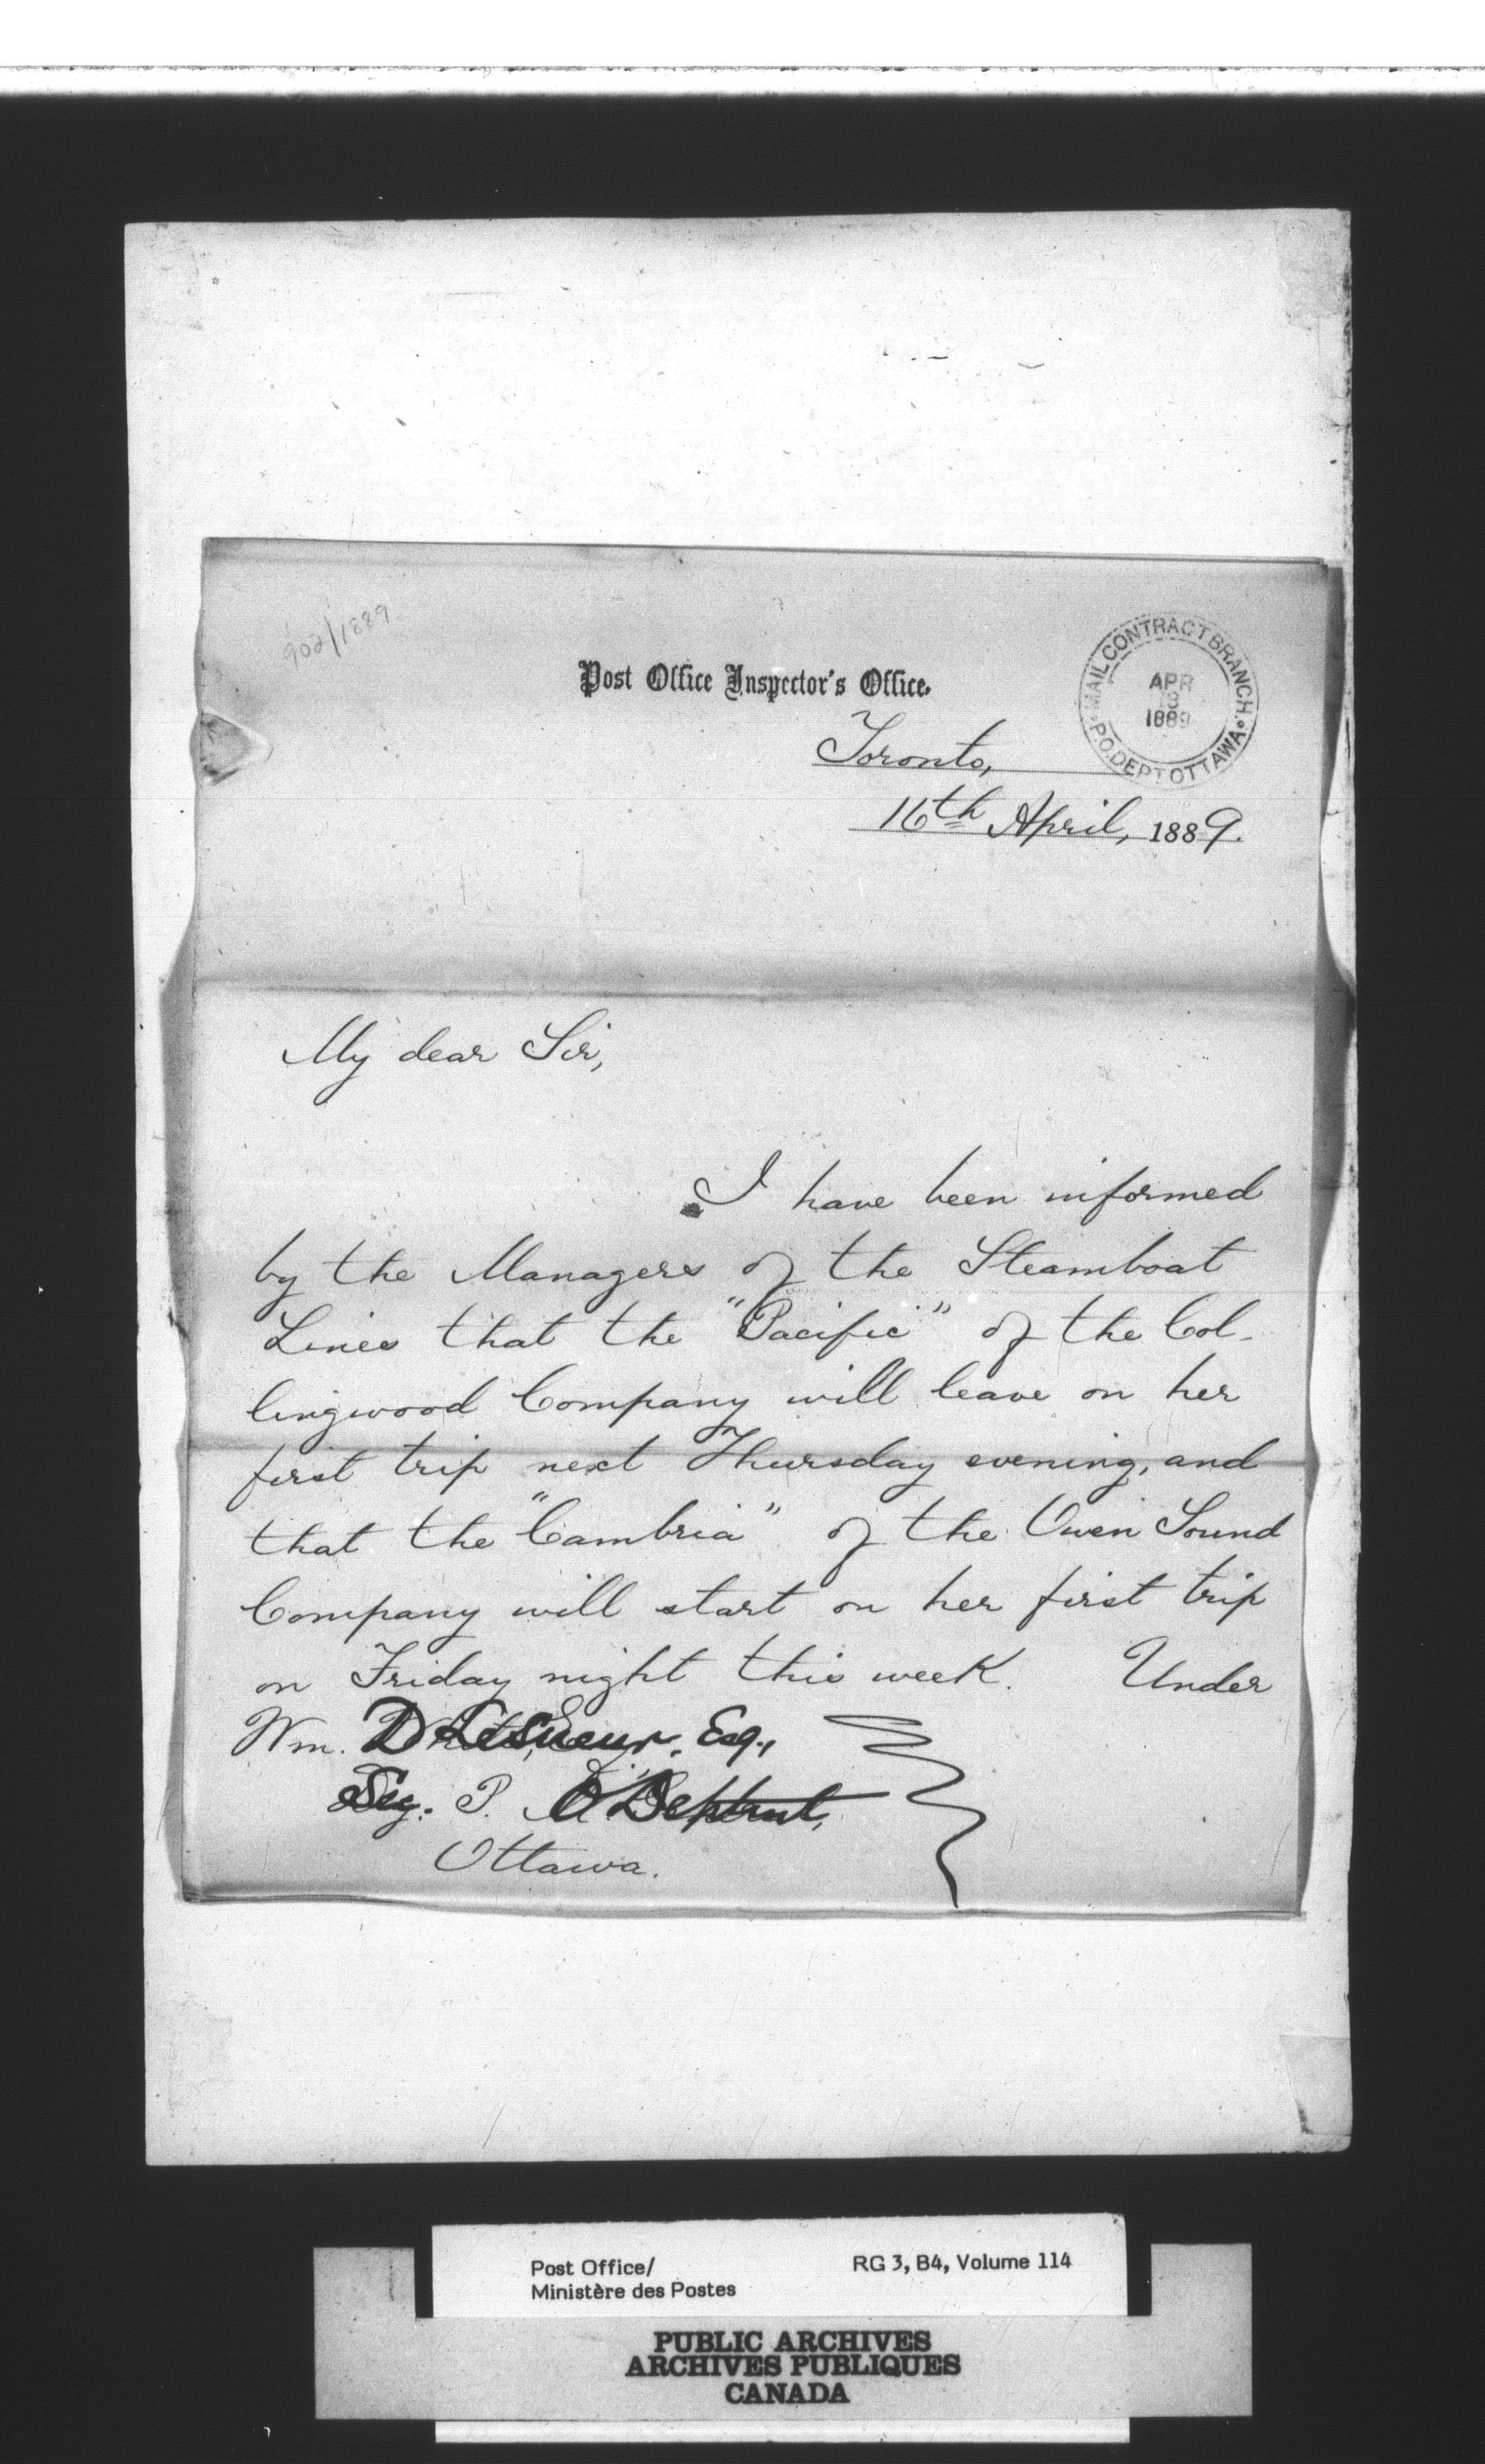 902/1889
Post Office Inspector's Office.
MAIL CONTRACT BRANCH.
APR
18
1889
P.O. DEPT OTTAWA
Toronto,
16th April, 1889.
My dear Sir,
I have been informed
by the Managers of the Steamboat
Lines that the "Pacific" of the Col-
lingwood Company will leave on her
first trip next Thursday evening, and
that the "Cambria" of the Owen Sound
Company will start on her first trip
on Friday night this week. Under
Wm. D LeSueur, Esq.,
Secy. P. O Deptmt,
Ottawa.
Post Office/
Ministère des Postes
RG 3, B4, Volume 114
PUBLIC ARCHIVES
ARCHIVES PUBLIQUES
CANADA